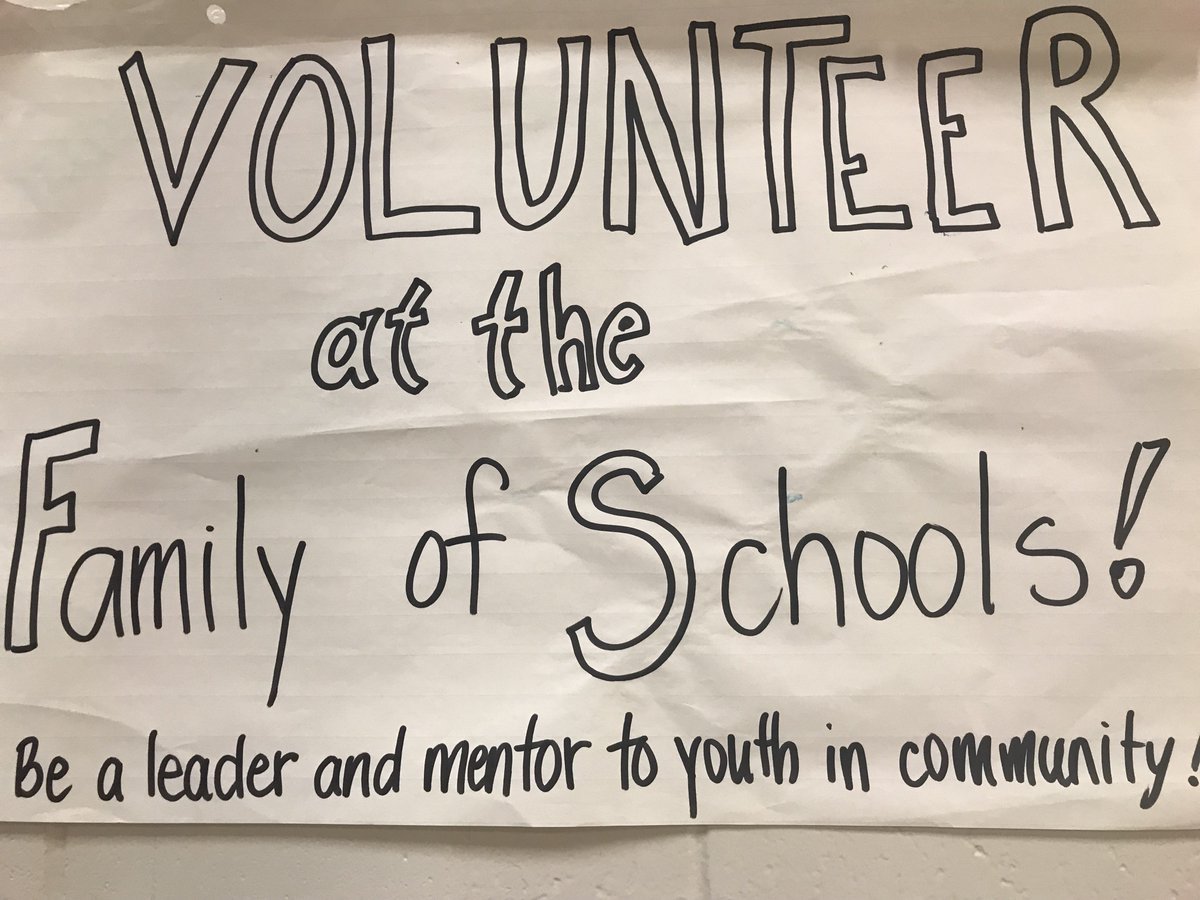 VOLUNTEER
at the
Family of Schools!
Be a leader and mentor to youth in community!